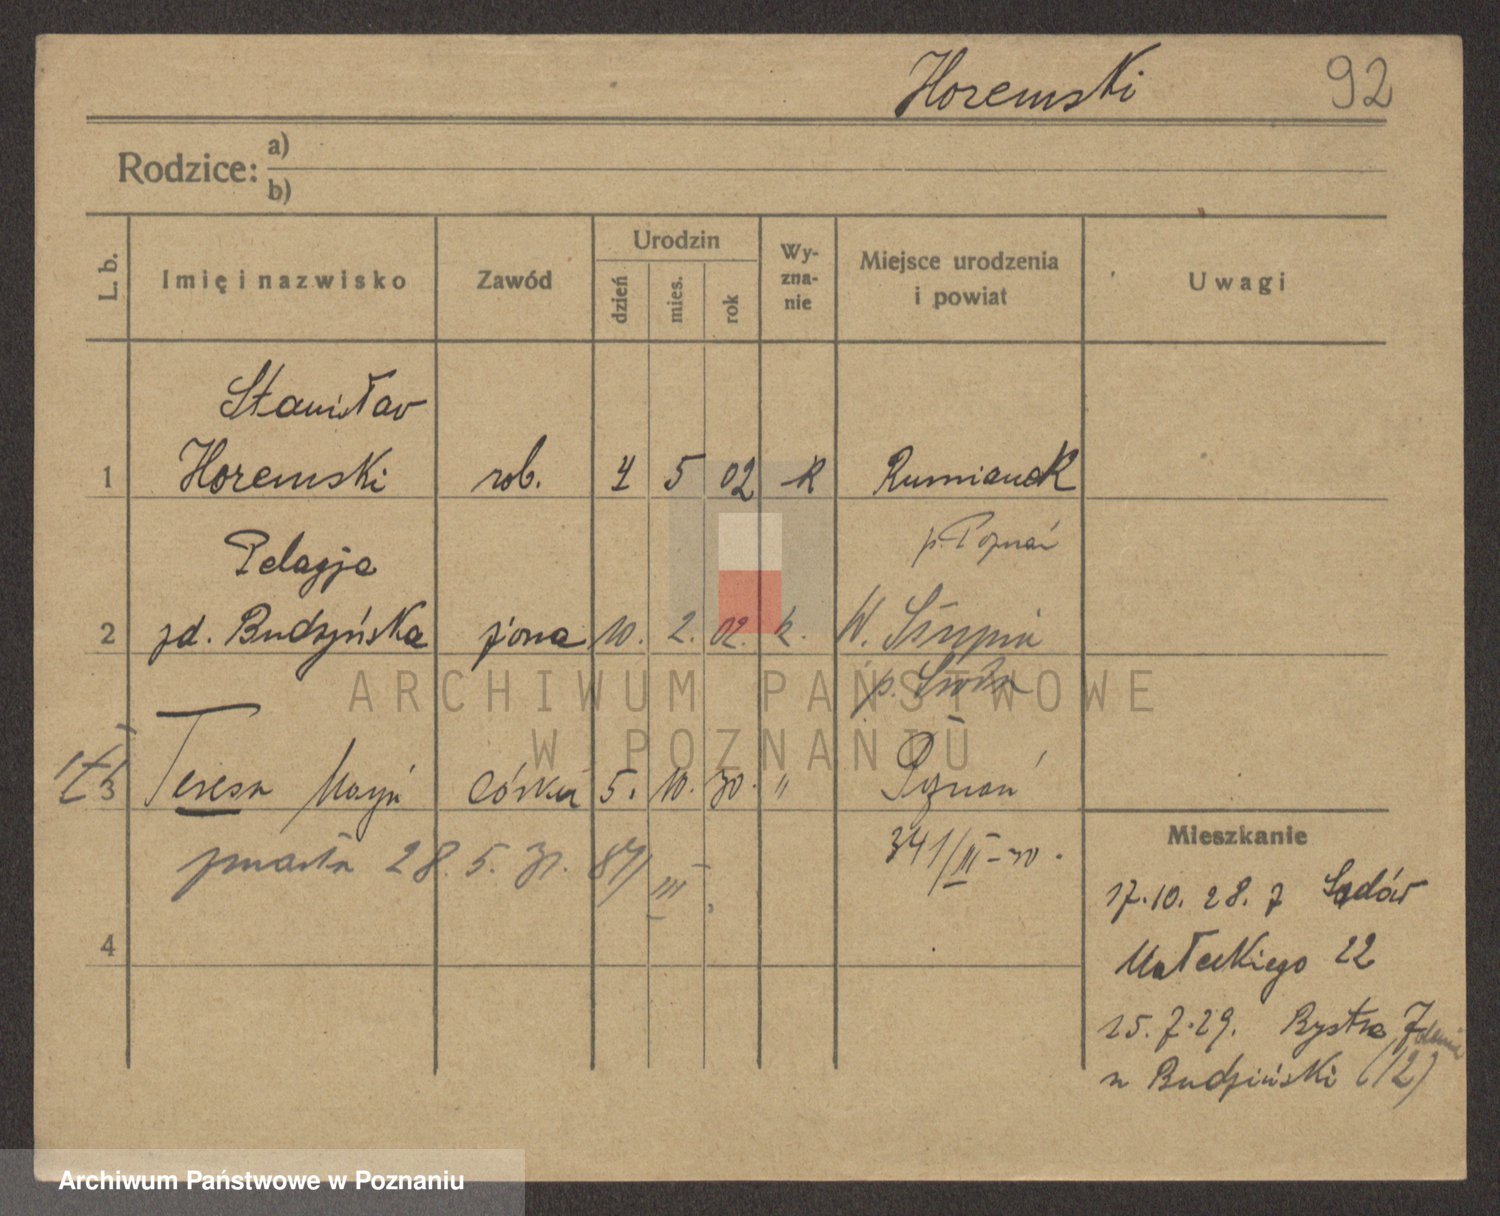 Horemski 92
Rodzice: a)
b)
L. b. Imię i nazwisko Zawód Urodzin dzień mies. rok Wy-zna-nie Miejsce urodzenia i powiat Uwagi
Stanisław
1 Horemski rob. 4 5 02 k Rumianek
Pelagja p. Poznań
2 zd. Budzyńska żona 10. 2. 02. k. W.
p.
ARCHIWUM PAŃSTWOWE
W POZNANIU
3 Teresa Marja córka 5. 10. 30. " Poznań
341/III-30.
zmarła 28. 5. 31. 87/III
4
Mieszkanie
17.10.28. z Sadów
Małeckiego 22
15.7.29. Bystra 7
u Budziński (12)
Archiwum Państwowe w Poznaniu